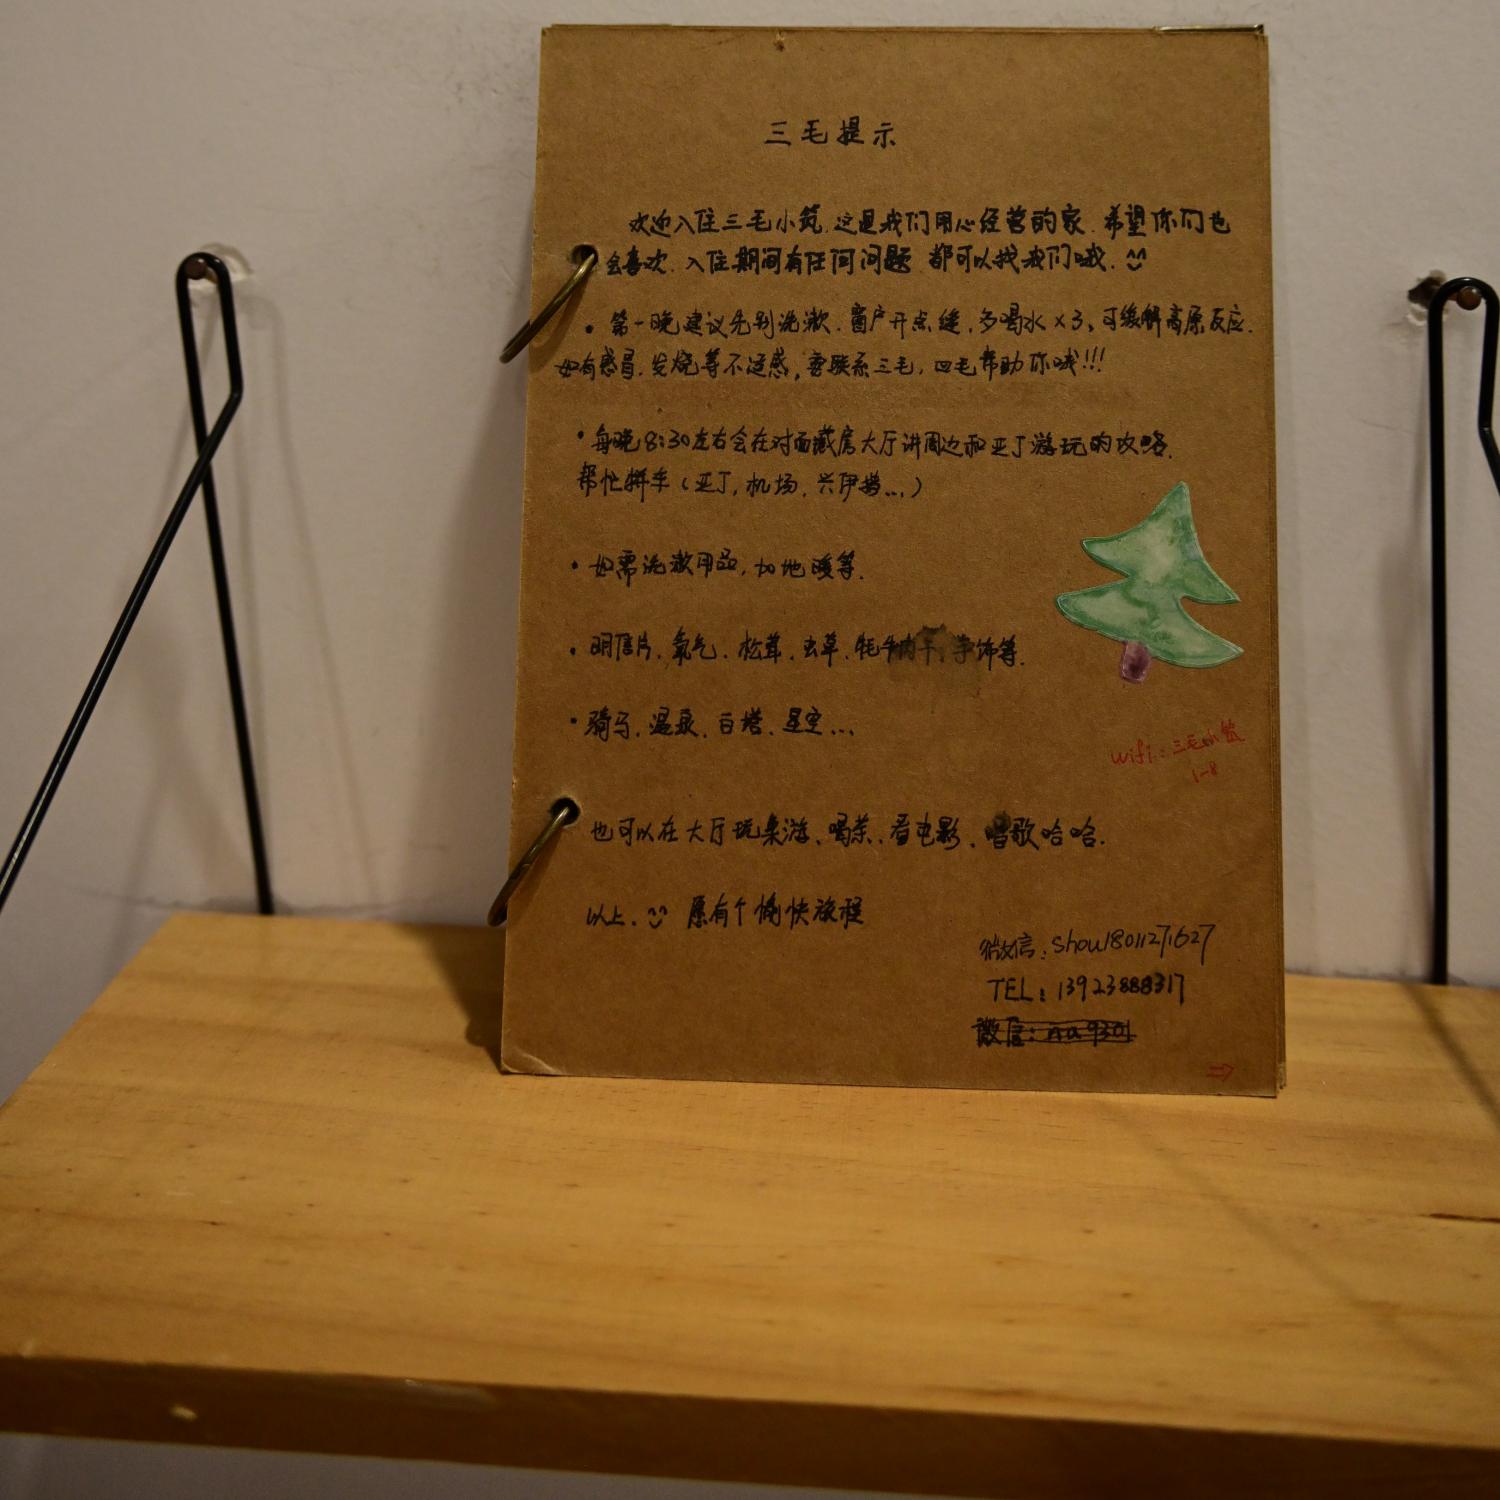 三毛提示
欢迎入住三毛小筑.这是我们用心经营的家.希望你们也
会喜欢.入住期间有任何问题.都可以找我们哦.
• 第一晚建议先别洗漱.窗户开点缝,多喝水×3、可缓解高原反应.
如有感冒.发烧等不适感,要联系三毛,四毛帮助你哦!!!
• 每晚8:30左右会在对面藏房大厅讲周边和亚丁游玩的攻略.
帮忙拼车(亚丁,机场.兴伊措...)
• 如需洗漱用品,加地暖等.
• 明信片.氧气.松茸.虫草.牦牛肉干,手饰等.
• 骑马.温泉.白塔.星空...
wifi:三毛小筑
1-8
也可以在大厅玩桌游、喝茶、看电影、唱歌哈哈.
以上. 愿有个愉快旅程
微信:show18011271627
TEL:13923888317
微信:na9301